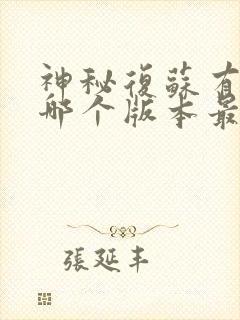 神秘復蘇有
哪个版本最
張延丰